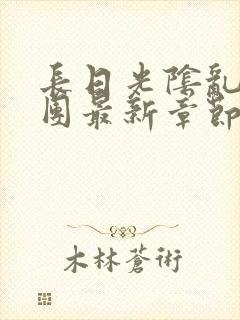 長日光陰亂
團最新章節
木林蒼術